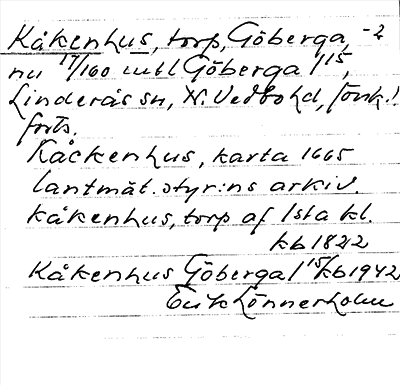 Kåkenhus, torp, Göberga, -2
nu 17/160 mtl Göberga 1 15,
Linderås sn, N. Vedbo hd, Jönk. l.
forts.
Kåckenhus, karta 1665
lantmät.styr:ns arkiv.
kåkenhus, torp af 1sta kl.
kb 1822
Kåkenhus Göberga 1 15/kb 1942
Erik Lönnerholm